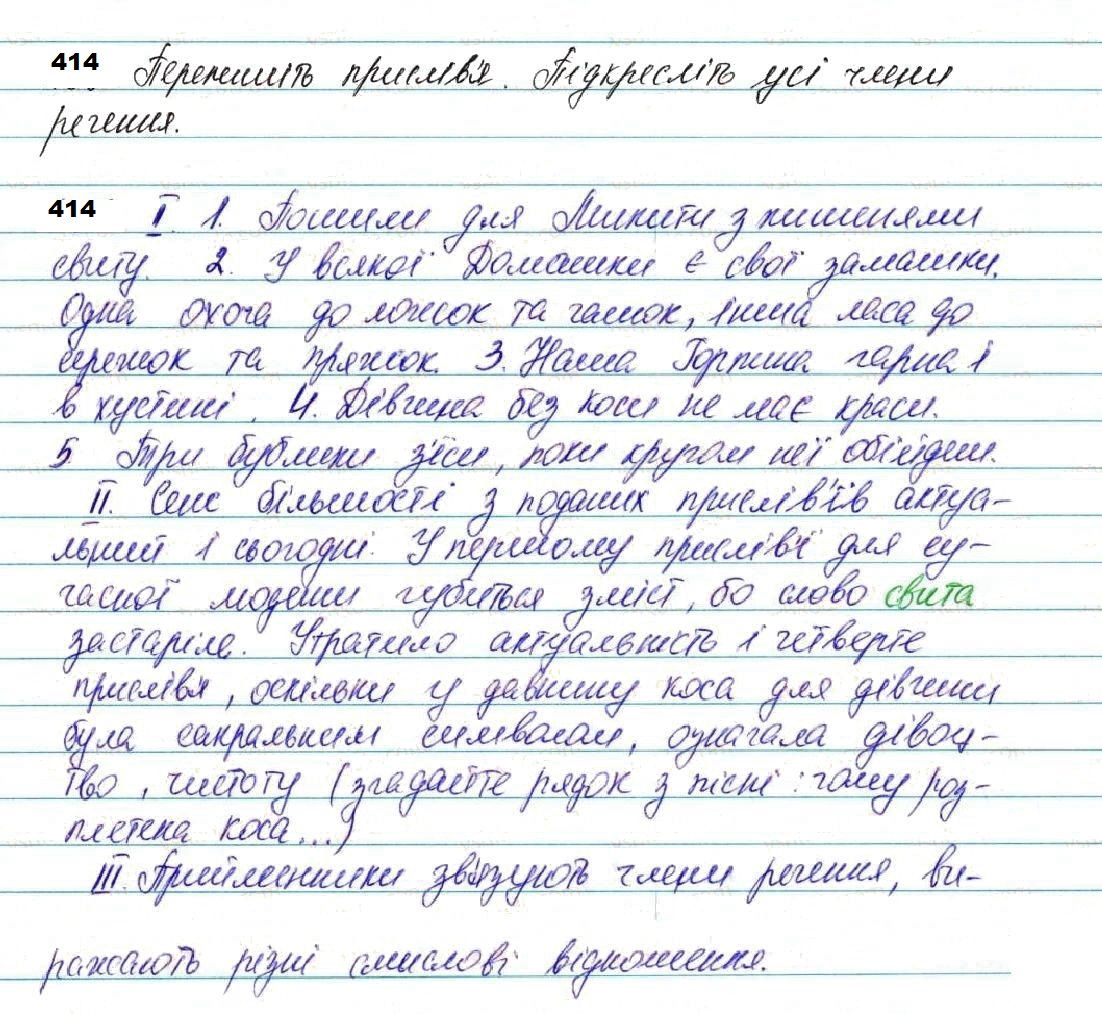 414 Перепишіть прислів'я. Підкресліть усі члени
речення.
414 І. 1. Пошили для Микити з кишенями
свиту. 2. У всякої Домашки є свої замашки.
Одна охоча до ложок та чашок, інша ласа до
сережок та пряжок. 3. Наша Горпина гарна і
в хустині. 4. Дівчина без коси не має краси.
5. Три бублики з'їси, поки кругом неї обійдеш.
ІІ. Сенс більшості з поданих прислів'їв актуа-
льний і сьогодні. У першому прислів'ї для су-
часної людини губиться зміст, бо слово свита
застаріле. Утратило актуальність і четверте
прислів'я, оскільки у давнину коса для дівчини
була сакральним символом, означала дівоц-
тво, чистоту (згадайте рядок з пісні: чому роз-
плетена коса...)
ІІІ. Прийменники зв'язують члени речення, ви-
ражають різні смислові відношення.